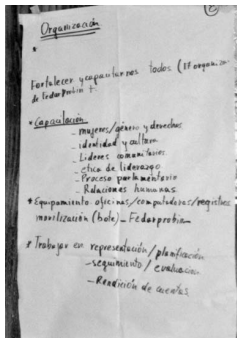 Organización
*
Fortalecer y capacitarnos todos (17 organiza
de Fedarprobim +
* Capacitación
- mujeres/género y derechos
- identidad y cultura
- Líderes comunitarios
- etica de liderazgo
- Proceso parlamentario
- Relaciones humanas
* Equipamiento oficinas/computadoras/registros
movilización (bote) - Fedarprobim
* Trabajar en representación/planificación
- seguimiento/evaluación
- Rendición de cuentas